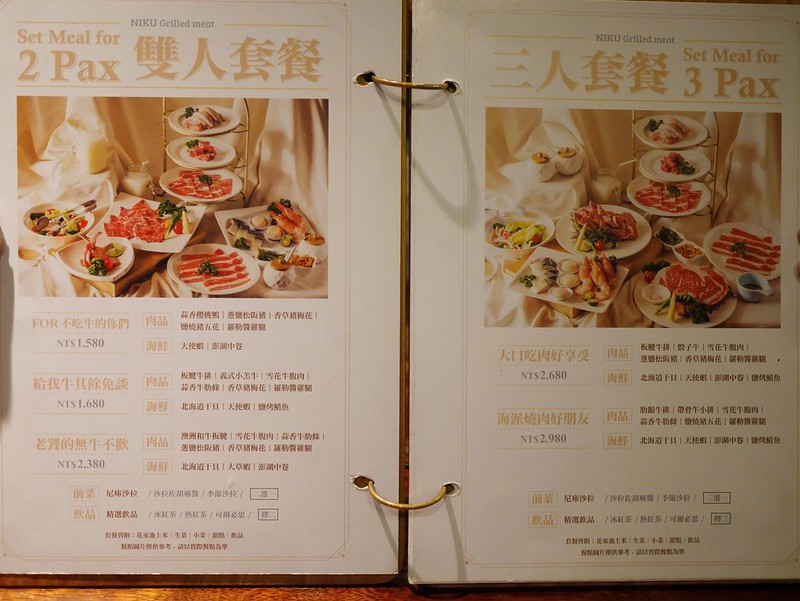 NIKU Grilled meat
Set Meal for
2 Pax 雙人套餐
FOR 不吃牛的你們
NT$ 1,580
肉品
蒜香櫻桃鴨 | 蔥鹽松阪豬 | 香草豬梅花 |
鹽燒豬五花 | 羅勒醬雞腿
海鮮
天使蝦 | 澎湖中卷
給我牛其餘免談
NT$ 1,680
肉品
板腱牛排 | 義式小羔牛 | 雪花牛腹肉 |
蒜香牛肋條 | 香草豬梅花 | 羅勒醬雞腿
海鮮
北海道干貝 | 天使蝦 | 鹽烤鯖魚
老饕的無牛不歡
NT$ 2,380
肉品
澳洲和牛板腱 | 雪花牛腹肉 | 蒜香牛肋條 |
蔥鹽松阪豬 | 香草豬梅花 | 羅勒醬雞腿
海鮮
北海道干貝 | 大草蝦 | 澎湖中卷
前菜
尼庫沙拉
/ 沙拉佐胡麻醬 / 季節沙拉 /
二選一
飲品
精選飲品
/ 冰紅茶 / 熱紅茶 / 可爾必思 /
擇二
套餐皆附:花東池上米 | 生菜 | 小菜 | 甜點 | 飲品
餐點圖片僅供參考,請以實際餐點為準
NIKU Grilled meat
三人套餐 Set Meal for
3 Pax
大口吃肉好享受
NT$ 2,680
肉品
板腱牛排 | 骰子牛 | 雪花牛腹肉 |
蔥鹽松阪豬 | 香草豬梅花 | 羅勒醬雞腿
海鮮
北海道干貝 | 天使蝦 | 澎湖中卷 | 鹽烤鯖魚
海派燒肉好朋友
NT$ 2,980
肉品
肋眼牛排 | 帶骨牛小排 | 雪花牛腹肉 |
蒜香牛肋條 | 鹽燒豬五花 | 羅勒醬雞腿
海鮮
北海道干貝 | 天使蝦 | 澎湖中卷 | 鹽烤鯖魚
前菜
尼庫沙拉
/ 沙拉佐胡麻醬 / 季節沙拉 /
二選一
飲品
精選飲品
/ 冰紅茶 / 熱紅茶 / 可爾必思 /
擇二
套餐皆附:花東池上米 | 生菜 | 小菜 | 甜點 | 飲品
餐點圖片僅供參考,請以實際餐點為準